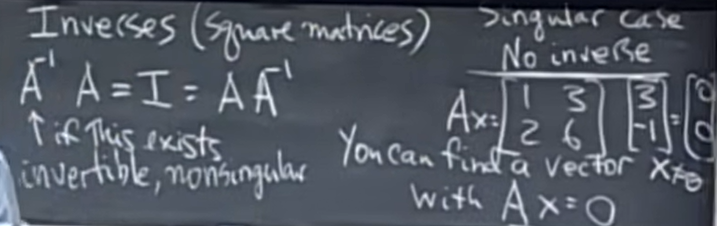 Inverses (square matrices)
A⁻¹ A = I = A A⁻¹
↑ if this exists
invertible, nonsingular
Singular case
No inverse
Ax = [1 3; 2 6] [3; -1] = [0; 0]
You can find a vector x≠0
with Ax = 0